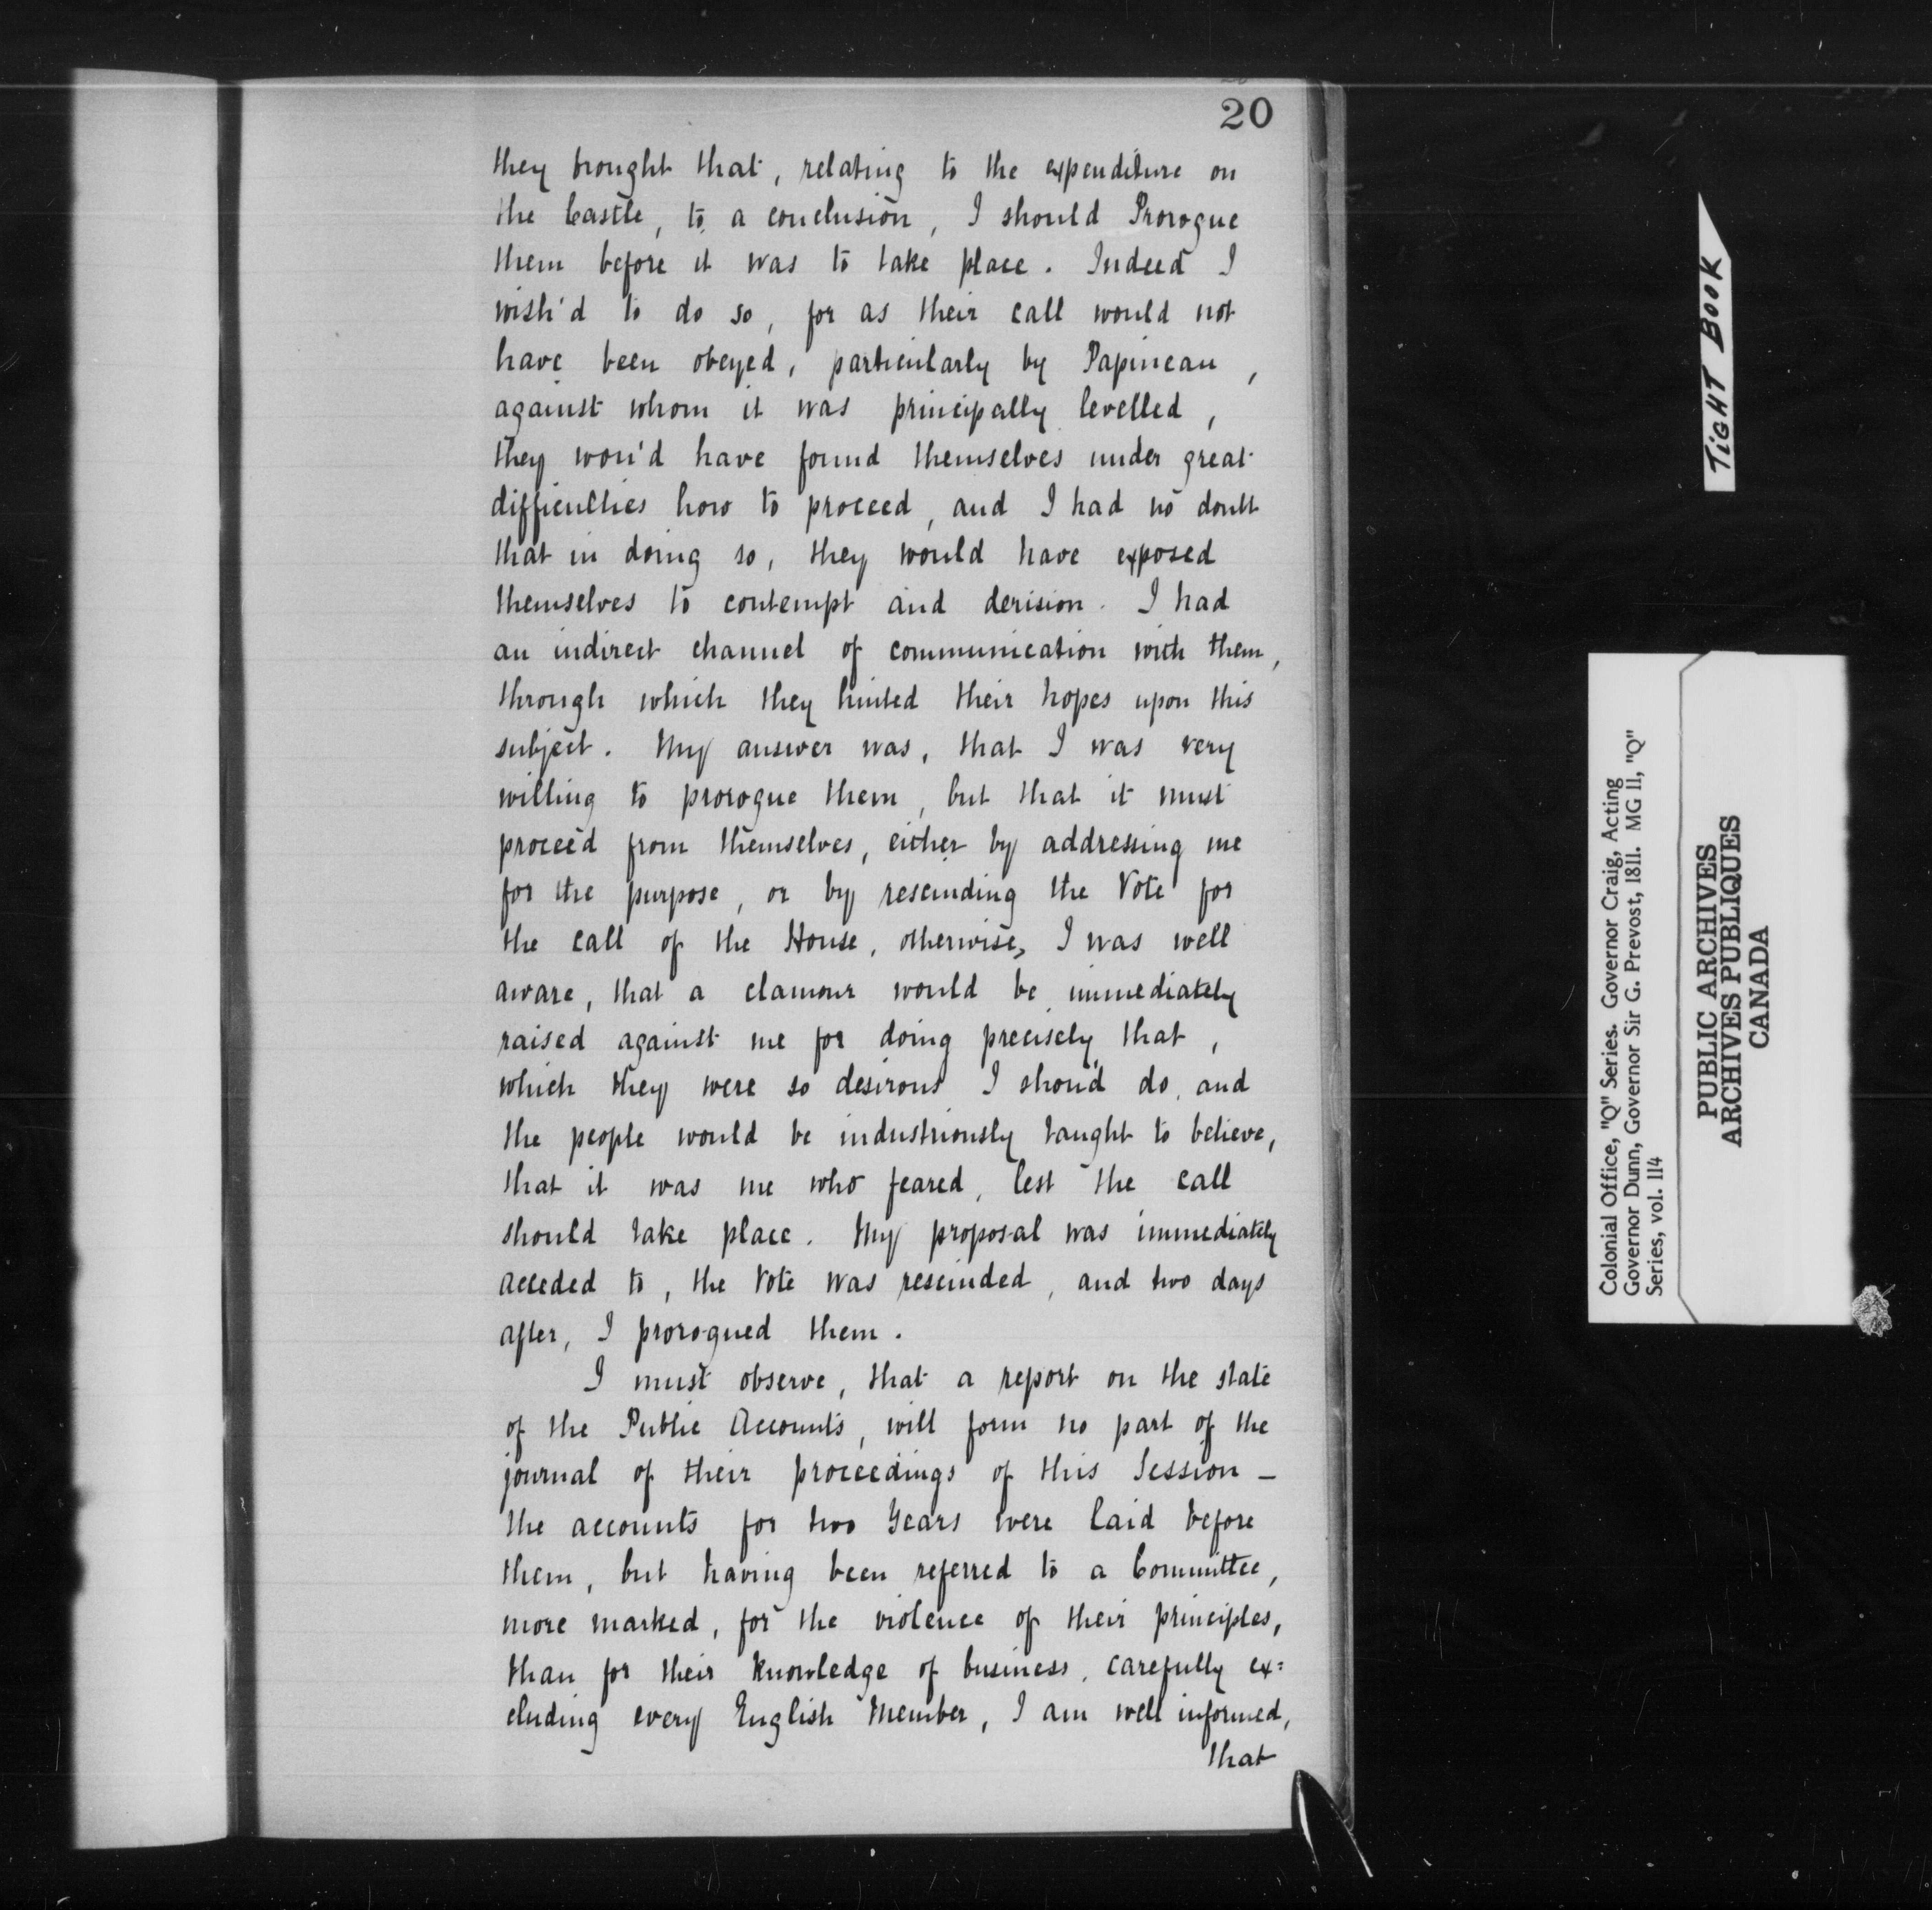 20
they brought that, relating to the expenditure on
the Castle, to a conclusion, I should Prorogue
them before it was to take place. Indeed I
wish'd to do so, for as their call would not
have been obeyed, particularly by Papineau,
against whom it was principally levelled,
they wou'd have found themselves under great
difficulties how to proceed, and I had no doubt
that in doing so, they would have exposed
themselves to contempt and derision. I had
an indirect channel of communication with them,
through which they hinted their hopes upon this
subject. My answer was, that I was very
willing to prorogue them, but that it must
proceed from themselves, either by addressing me
for the purpose, or by rescinding the Vote for
the call of the House, otherwise, I was well
aware, that a clamour would be immediately
raised against me for doing precisely that,
which they were so desirous I shou'd do, and
the people would be industriously taught to believe,
that it was me who feared, lest the call
should take place. My proposal was immediately
acceded to, the Vote was rescinded, and two days
after, I prorogued them.
I must observe, that a report on the state
of the Public Accounts, will form no part of the
journal of their proceedings of this Session -
the accounts for two Years were laid before
them, but having been referred to a Committee,
more marked, for the violence of their principles,
than for their knowledge of business, carefully ex=
cluding every English Member, I am well informed,
that
TIGHT BOOK
Colonial Office, "Q" Series. Governor Craig, Acting
Governor Dunn, Governor Sir G. Prevost, 1811. MG 11, "Q"
Series, vol. 114
PUBLIC ARCHIVES
ARCHIVES PUBLIQUES
CANADA